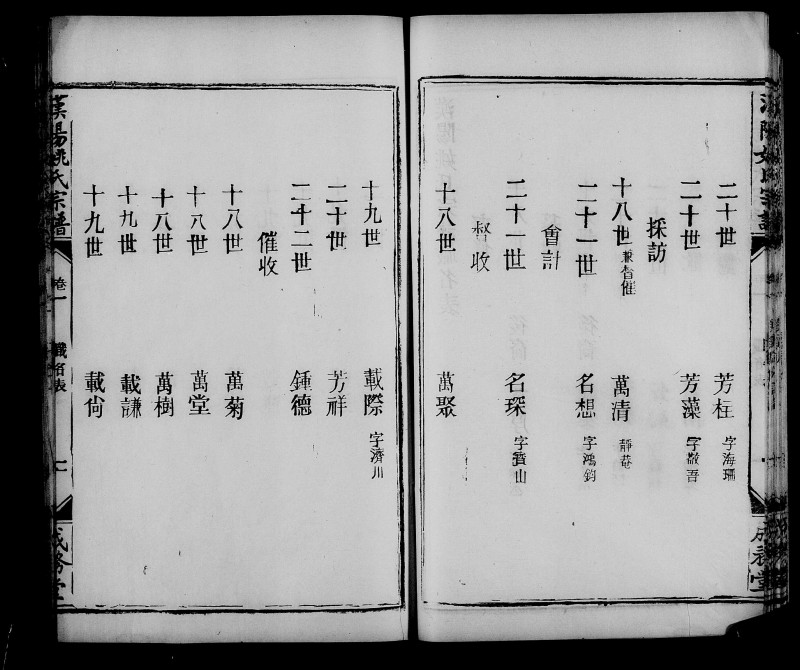 二十世 芳桂 字海珊
二十世 芳藻 字敬吾
採訪
十八世 兼督催 萬清 靜菴
二十一世 名想 字鴻鈞
會計
二十一世 名琛 字寶山
督收
十八世 萬聚
十九世 載際 字濟川
二十世 芳祥
二十二世 鍾德
催收
十八世 萬菊
十八世 萬堂
十八世 萬樹
十九世 載謙
十九世 載尙
漢陽姚氏宗譜
卷一
職名表
成務堂